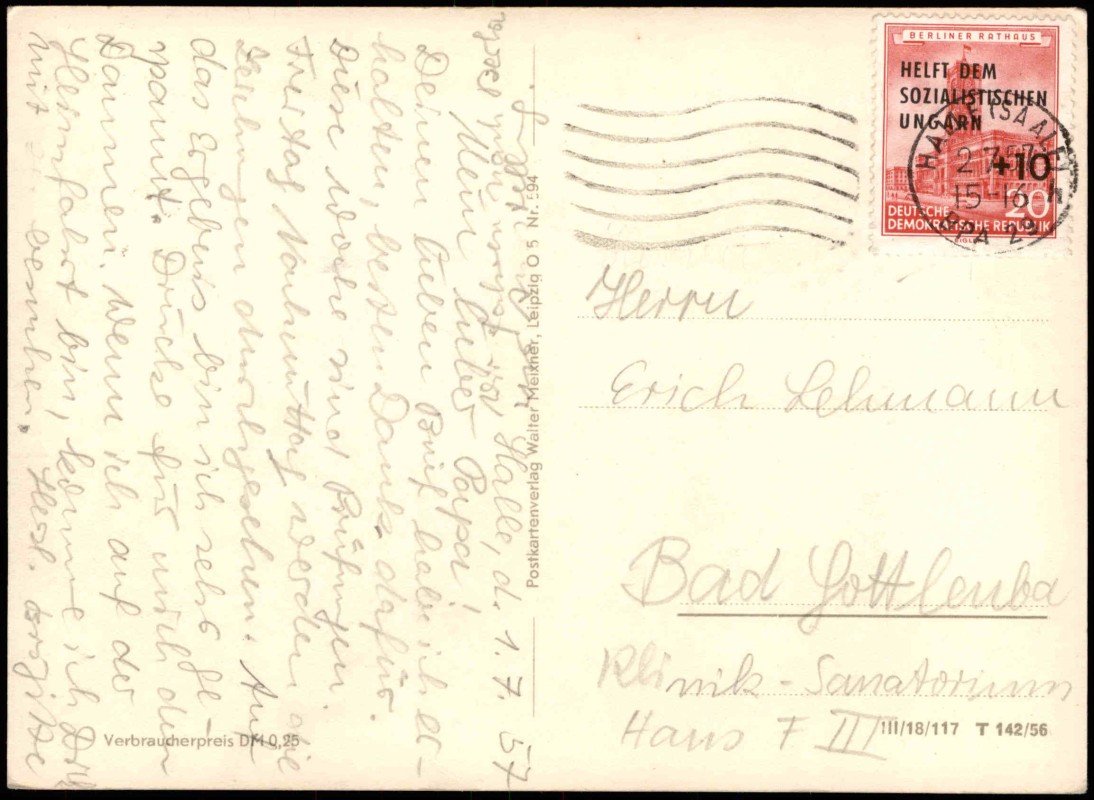 Halle, d. 1. 7. 57
Mein lieber Papa!
Deinen lieben Brief habe ich er-
halten, besten Dank dafür.
Diese Woche sind Prüfungen.
Freitag Nachmittag werden die
durchgesehen. Auf
das Ergebnis bin ich sehr ge-
spannt. Drücke für mich den
Daumen. Wenn ich auf der
Heimfahrt bin, komme ich Dich
mit besuchen. Herzl. grüßt
Postkartenverlag Walter Meixner, Leipzig O 5 Nr. 594
Verbraucherpreis DM 0,25
BERLINER RATHAUS
HELFT DEM
SOZIALISTISCHEN
UNGARN
+10
20
DEUTSCHE
DEMOKRATISCHE REPUBLIK
HALLE (SAALE)
2.7.57
15-16
Herrn
Erich Lehmann
Bad Gottleuba
Klinik-Sanatorium
Haus F III
III/18/117 T 142/56